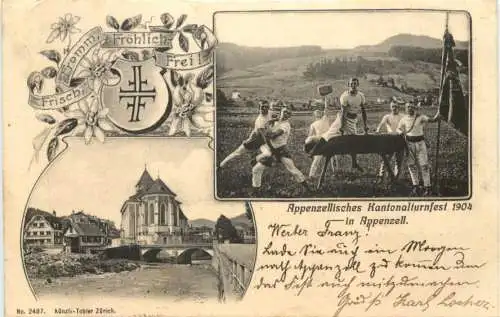 Frisch
Fromm
Fröhlich
Frei!
Appenzellisches Kantonalturnfest 1904
in Appenzell.
Werter Franz!
Lade Sie auf Morgen
nach Appenzell zu kommen um
das Fest auch mitzumachen
Gruß Karl
No. 2487. Künzli-Tobler Zürich.